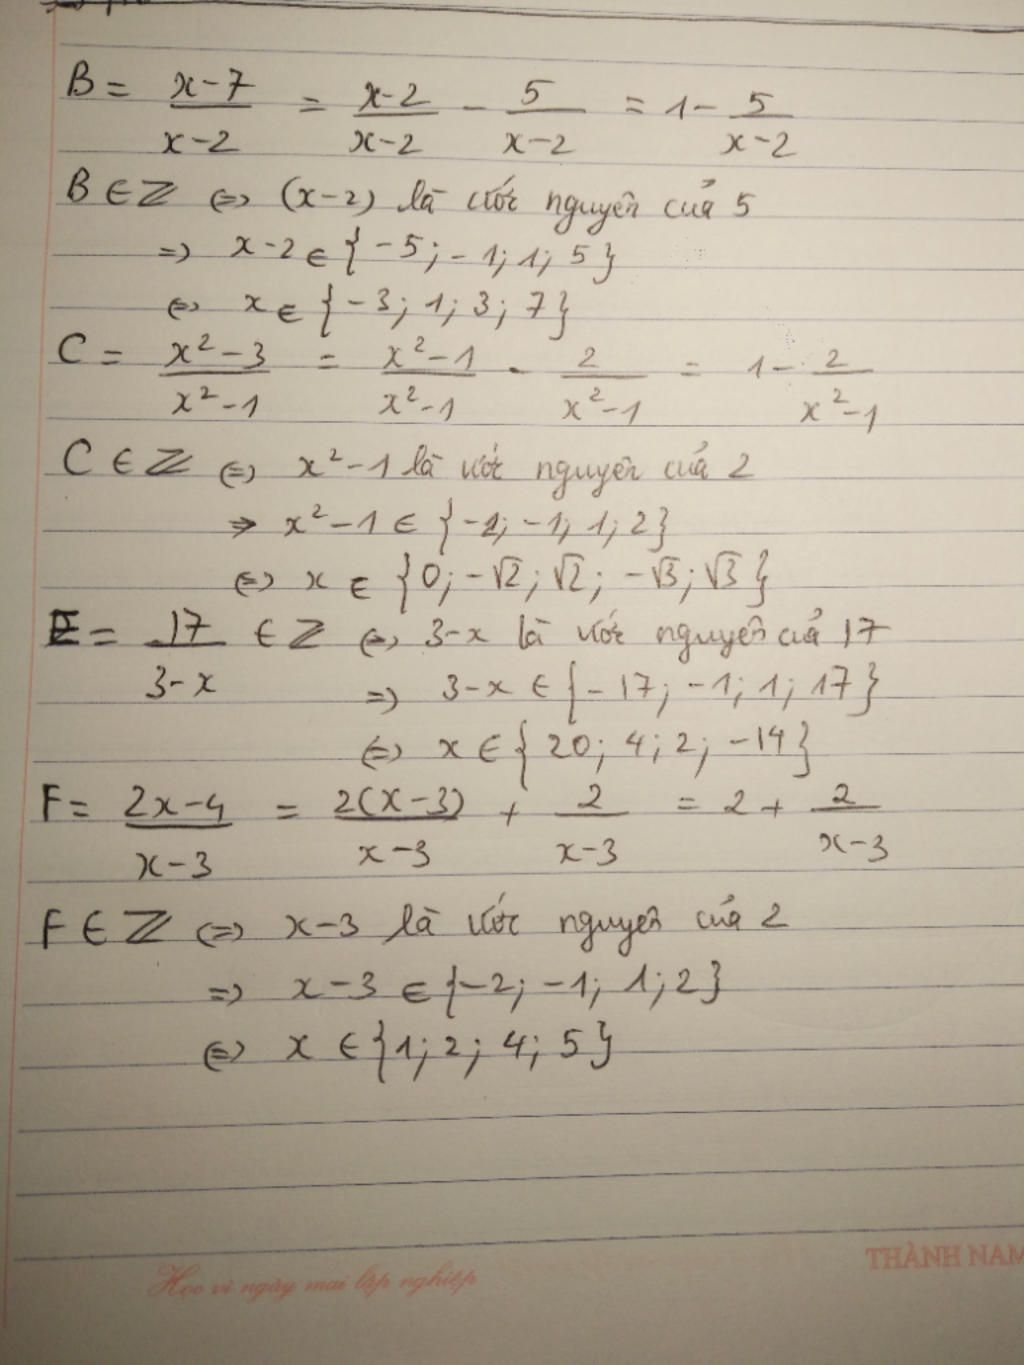 B = x-7/x-2 = x-2/x-2 - 5/x-2 = 1 - 5/x-2
B ∈ Z ⇔ (x-2) là ước nguyên của 5
⇒ x-2 ∈ {-5; -1; 1; 5}
⇔ x ∈ {-3; 1; 3; 7}
C = x²-3/x²-1 = x²-1/x²-1 - 2/x²-1 = 1 - 2/x²-1
C ∈ Z ⇔ x²-1 là ước nguyên của 2
⇒ x²-1 ∈ {-2; -1; 1; 2}
⇔ x ∈ {0; -√2; √2; -√3; √3}
E = 17/3-x ∈ Z ⇔ 3-x là ước nguyên của 17
⇒ 3-x ∈ {-17; -1; 1; 17}
⇔ x ∈ {20; 4; 2; -14}
F = 2x-4/x-3 = 2(x-3)/x-3 + 2/x-3 = 2 + 2/x-3
F ∈ Z ⇔ x-3 là ước nguyên của 2
⇒ x-3 ∈ {-2; -1; 1; 2}
⇔ x ∈ {1; 2; 4; 5}
THÀNH NAM
Học vì ngày mai lập nghiệp